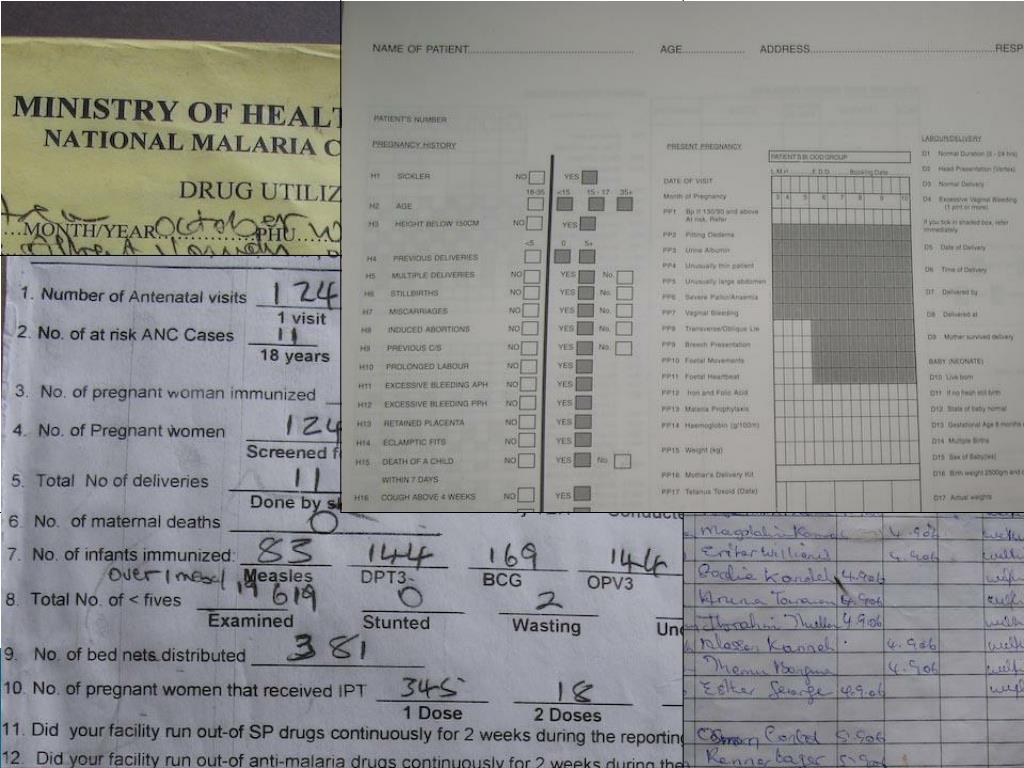 MINISTRY OF HEALT
NATIONAL MALARIA C
DRUG UTILIZ
MONTH/YEAR October PHU
NAME OF PATIENT AGE ADDRESS RESP
PATIENT'S NUMBER
PREGNANCY HISTORY
H1 SICKLER NO YES
18-35 <15 15 - 17 35+
H2 AGE
H3 HEIGHT BELOW 150CM NO YES
<5 0 5+
H4 PREVIOUS DELIVERIES
H5 MULTIPLE DELIVERIES NO YES No.
H6 STILLBIRTHS NO YES No.
H7 MISCARRIAGES NO YES No.
H8 INDUCED ABORTIONS NO YES No.
H9 PREVIOUS C/S NO YES No.
H10 PROLONGED LABOUR NO YES
H11 EXCESSIVE BLEEDING APH NO YES
H12 EXCESSIVE BLEEDING PPH NO YES
H13 RETAINED PLACENTA NO YES
H14 ECLAMPTIC FITS NO YES
H15 DEATH OF A CHILD NO YES No
WITHIN 7 DAYS
H16 COUGH ABOVE 4 WEEKS NO YES
PRESENT PREGNANCY
PATIENT'S BLOOD GROUP
L.M.P. E.D.D. Booking Date
DATE OF VISIT
Month of Pregnancy 3 4 5 6 7 8 9 10
PP1 Bp if 130/90 and above
At risk, Refer
PP2 Pitting Oedema
PP3 Urine Albumin
PP4 Unusually thin patient
PP5 Unusually large abdomen
PP6 Severe Pallor/Anaemia
PP7 Vaginal Bleeding
PP8 Transverse/Oblique Lie
PP9 Breech Presentation
PP10 Foetal Movements
PP11 Foetal Heartbeat
PP12 Iron and Folic Acid
PP13 Malaria Prophylaxis
PP14 Haemoglobin (g/100m)
PP15 Weight (kg)
PP16 Mother's Delivery Kit
PP17 Tetanus Toxoid (Date)
LABOUR/DELIVERY
D1 Normal Duration (5 - 24 hrs)
D2 Head Presentation (Vertex)
D3 Normal Delivery
D4 Excessive Vaginal Bleeding
(1 pint or more)
If you tick in shaded box, refer
immediately
D5 Date of Delivery
D6 Time of Delivery
D7 Delivered by
D8 Delivered at
D9 Mother survived delivery
BABY (NEONATE)
D10 Live born
D11 If no fresh still birth
D12 State of baby normal
D13 Gestational Age 8 months
D14 Multiple Births
D15 Sex of Baby(ies)
D16 Birth weight 2500gm and
D17 Actual weights
1. Number of Antenatal visits 124
1 visit
2. No. of at risk ANC Cases 11
18 years
3. No. of pregnant woman immunized
4. No. of Pregnant women 124
Screened f
5. Total No of deliveries 11
Done by s
6. No. of maternal deaths 0
7. No. of infants immunized: 83 144 169 144
Measles DPT3 BCG OPV3
8. Total No. of < fives 619 0 2
Examined Stunted Wasting Un
9. No. of bed nets distributed 381
10. No. of pregnant women that received IPT 345 18
1 Dose 2 Doses
11. Did your facility run out-of SP drugs continuously for 2 weeks during the reporting
12. Did your facility run out-of anti-malaria drugs continuously for 2 weeks during the
4.906
4.906
4.906
4.906
4.906
Kanneh 4.906
4.906
Esther George 4.9.06
5.906
5.906